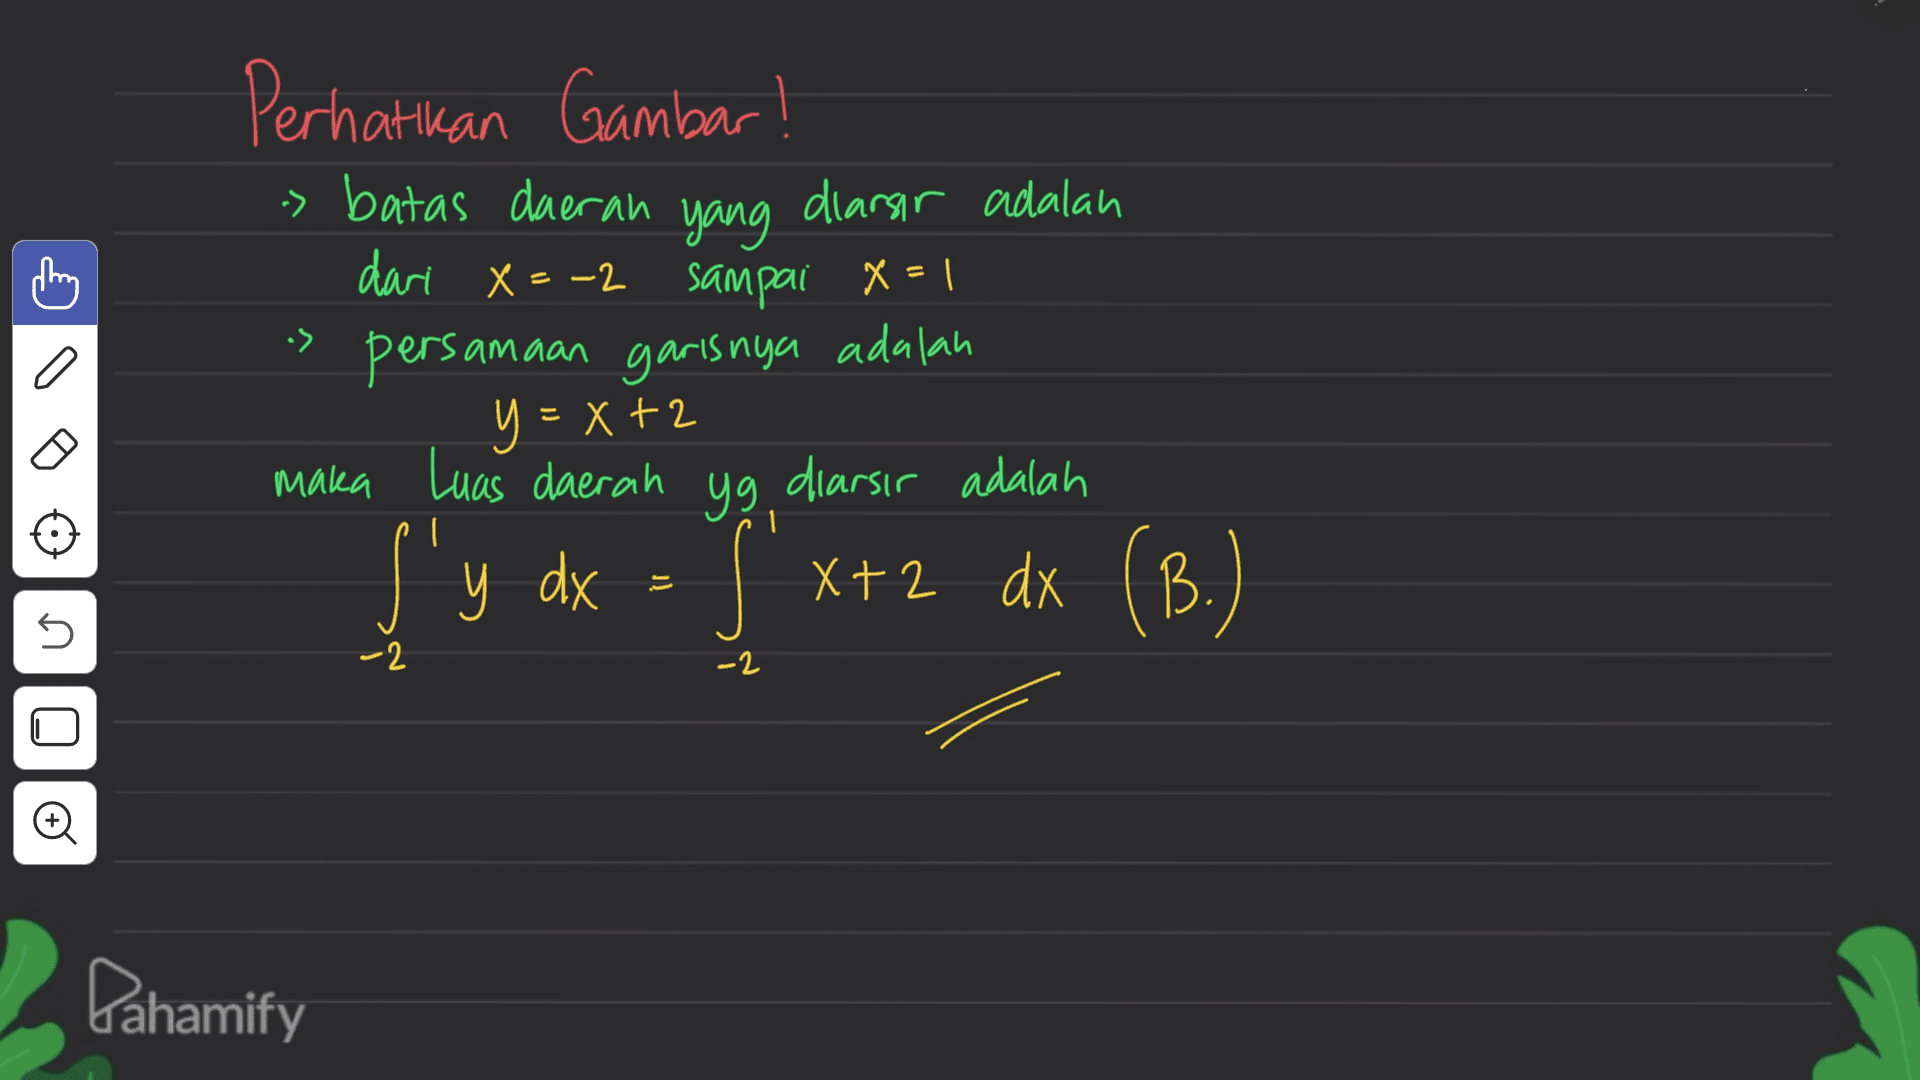 Perhatikan Gambar!
-> batas daerah yang diarsir adalah
dari x = -2 sampai x = 1
-> persamaan garisnya adalah
y = x + 2
maka Luas daerah yg diarsir adalah
∫₋₂¹ y dx = ∫₋₂¹ x+2 dx (B.)
Pahamify